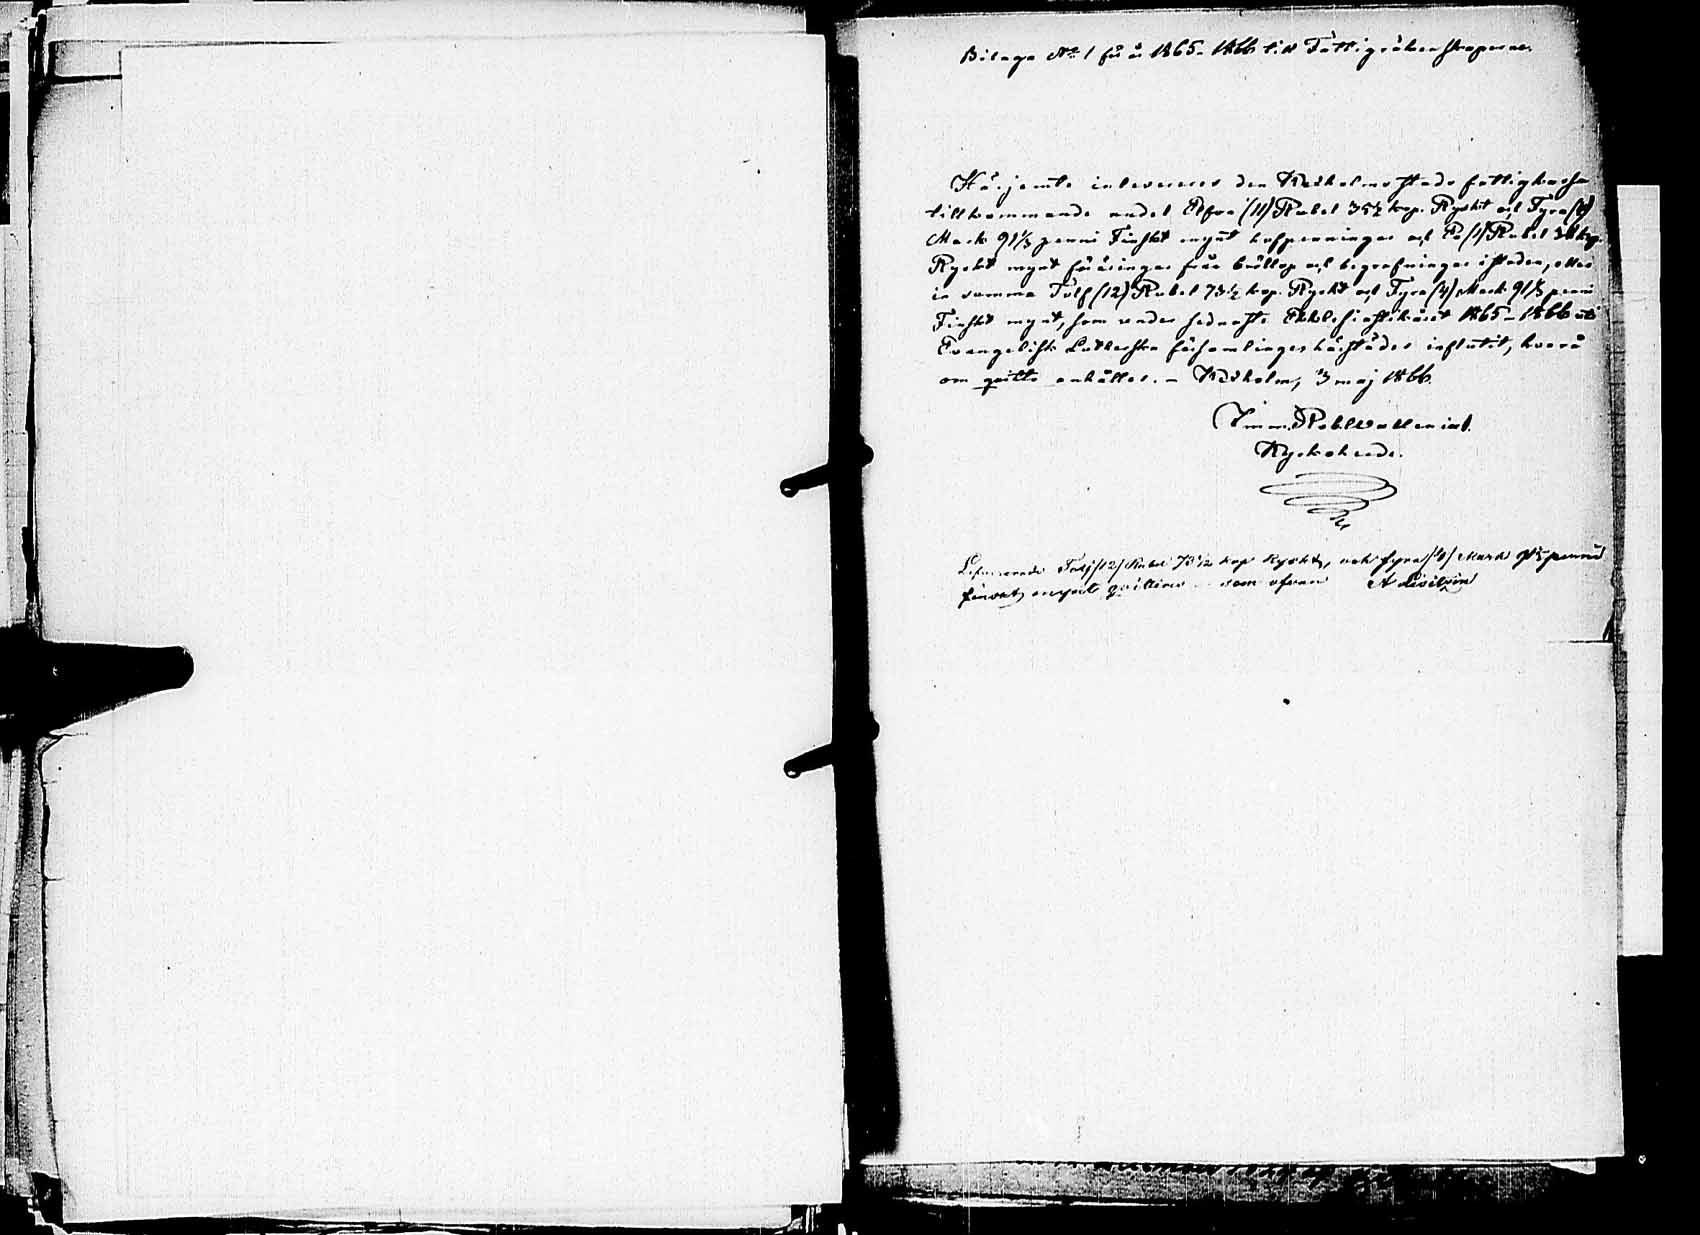 Bilaga No 1 för år 1865-1866 till Fattigräkenskaperne.
Härjemte inlevereres den Kexholms stads fattigkassa
tillkommande andel Elfva (11) Rubel 35½ kop. Ryskt och Fyra (4)
Mark 91⅓ penni Finskt mynt håfpenningar och En (1) Rubel 38 kop.
Ryskt mynt föräringar från bröllop och begrafningar i staden, eller
in summa Tolf (12) Rubel 73½ kop. Ryskt och Fyra (4) Mark 91⅓ penni
Finskt mynt, som under sednaste Ekklesiastikåret 1865-1866 uti
Evangeliskt Lutherska församlingen härstädes influtit, hvarå
om qvitto anhålles. - Kexholm, 3 maj 1866.
Kyrkoherde.
Rubel 73½ kop Ryskt, och fyra /4/ Mark 91⅓ penni
finskt mynt qvitteras som ofvan